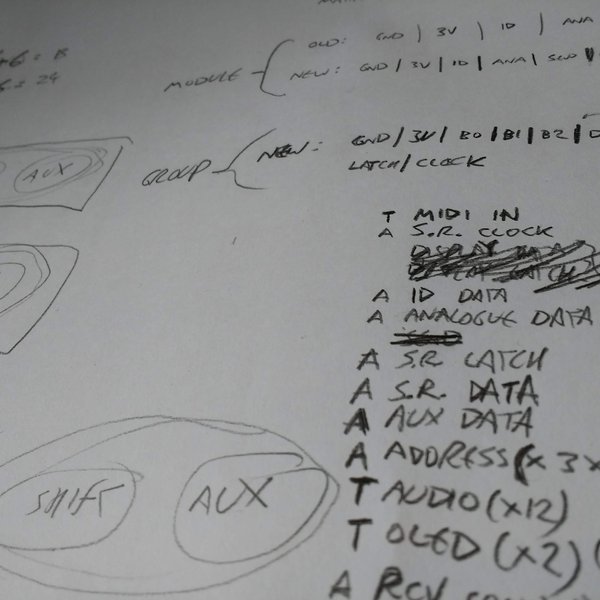 = 24
MODULE
OLD: GND | 3V | ID | ANA
NEW: GND / 3V / ID / ANA / SCLD
AUX
GROUP
NEW: GND / 3V / B0 / B1 / B2 / D
LATCH / CLOCK
T MIDI IN
A S.R. CLOCK
DISPLAY DATA
DISPLAY LATCH
A ID DATA
A ANALOGUE DATA
A S.R LATCH
A S.R. DATA
A AUX DATA
A ADDRESS (x 3 x
T AUDIO (x12)
T OLED (x2) (
A RCV
SHIFT
AUX